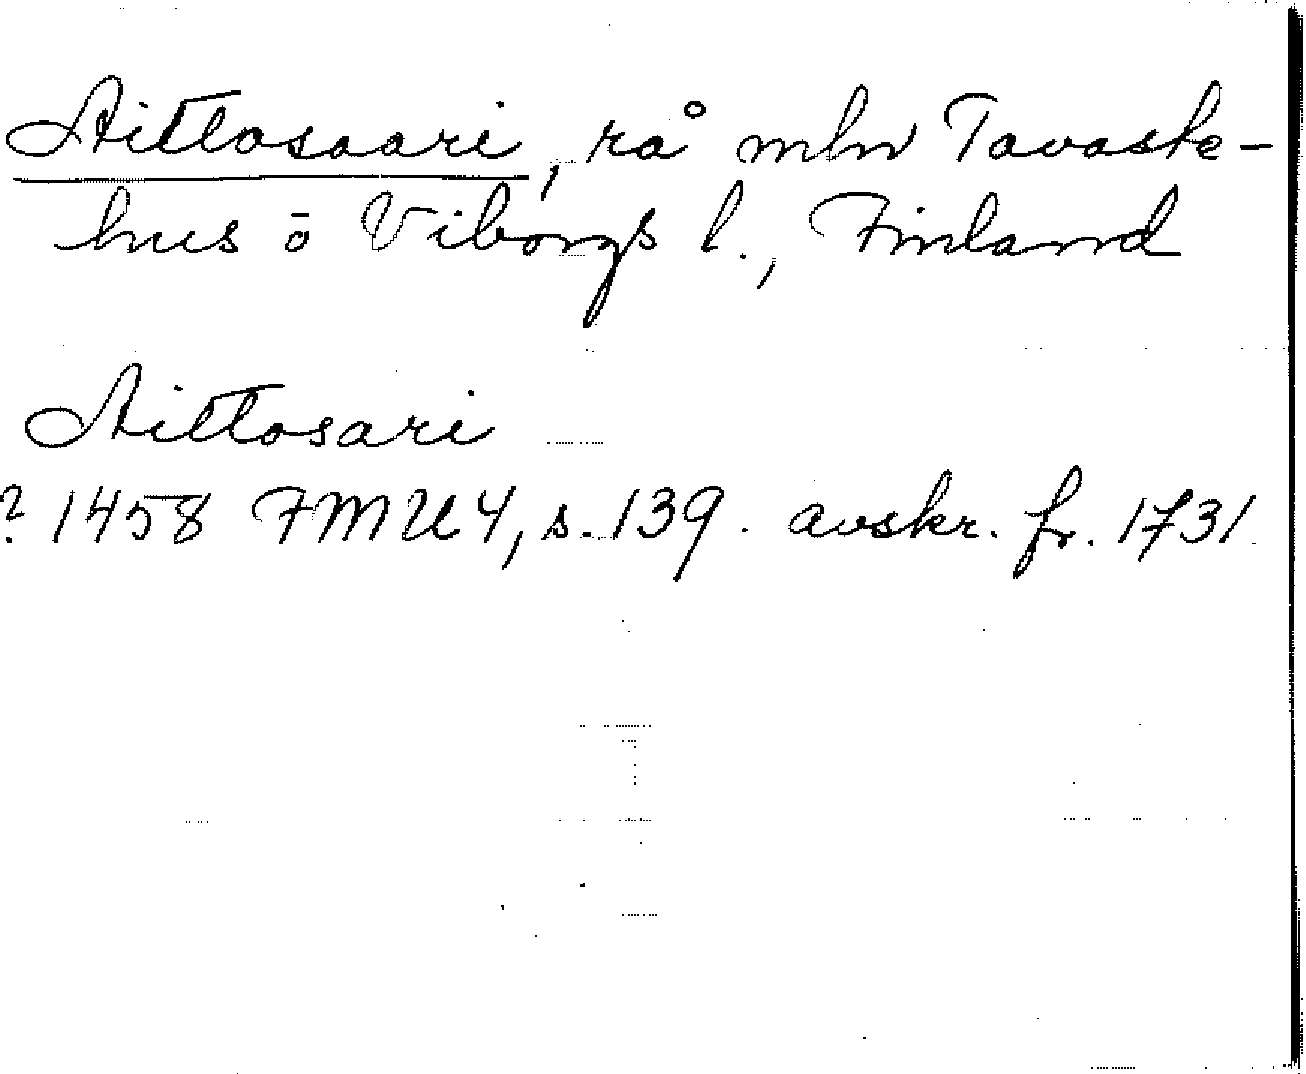 Aittosaari, rå mln Tavaste-
hus o Viborgs l., Finland
Aittosari
? 1458 FMU 4, s. 139. avskr. fr. 1731